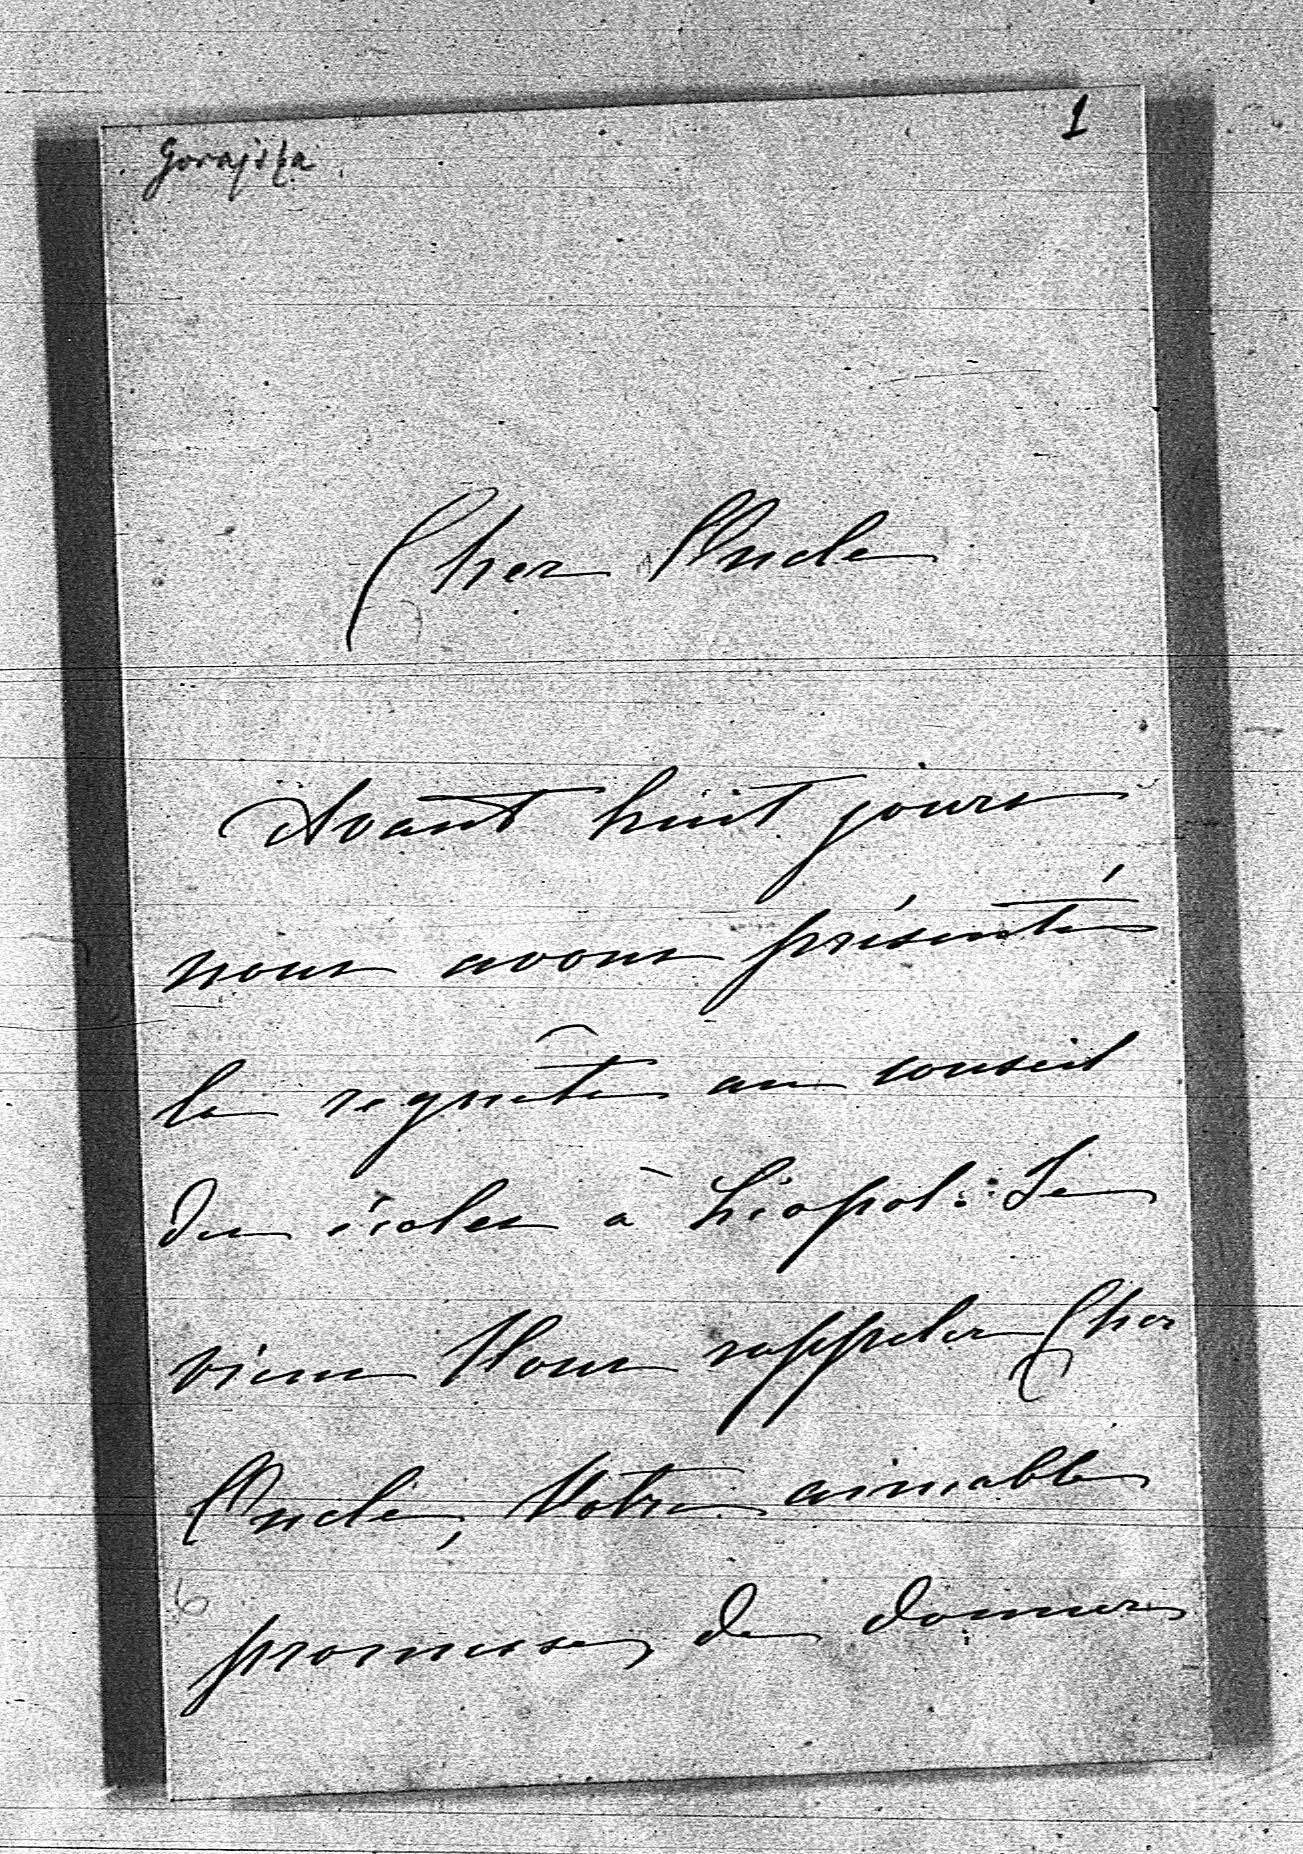 1
Gorajska
Cher Oncle
Avant huit jours
nous avons présenté
la requête au conseil
des écoles à Léopol. Je
viens Vous rappeler Cher
Oncle, Votre aimable
promesse, de donner
6